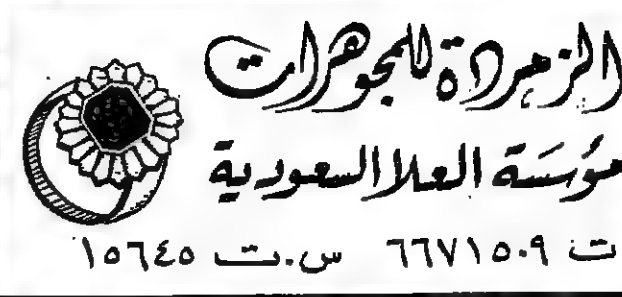 الزمردة للمجوهرات
مؤسسة العلا السعودية
ت ٦٦٧١٥٠٩ س.ت ١٥٦٤٥